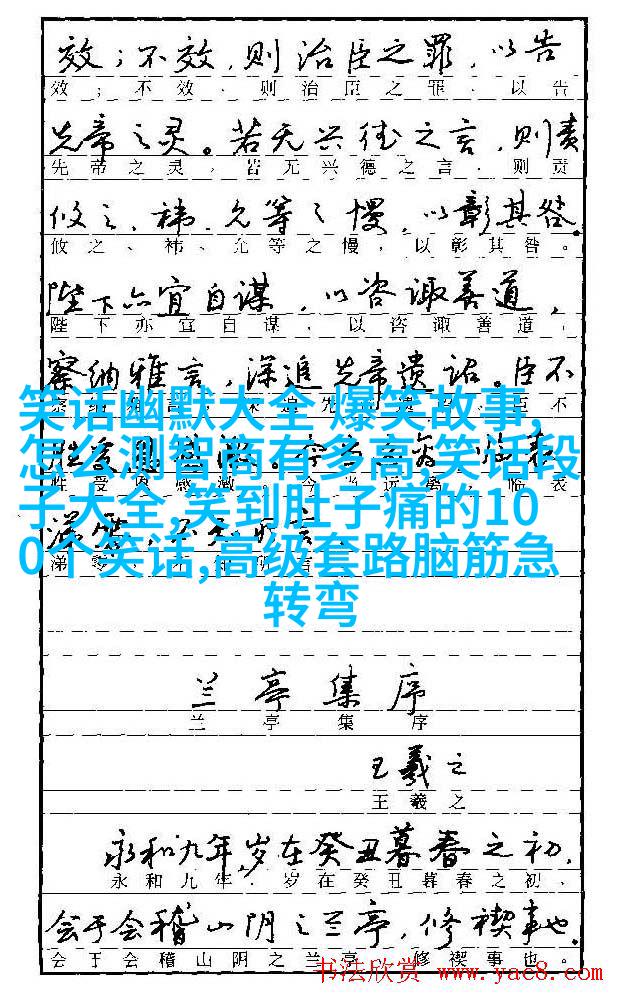 效；不效，则治臣之罪，以告
效；不效、则治臣之罪、以告
先帝之灵。若无兴德之言，则责
先帝之灵，若无兴德之言，则责
攸之、祎、允等之慢，以彰其咎。
攸之、祎、允等之慢，以彰其咎。
陛下亦宜自谋，以咨诹善道，
陛下亦宜自谋，以咨诹善道，
察纳雅言，深追先帝遗诏。臣不
笑话幽默大全 爆笑故事,
怎么测智商有多高,笑话段
子大全,笑到肚子痛的10
0个笑话,高级套路脑筋急
转弯
兰亭集序
兰亭集序
王羲之
王羲之
永和九年，岁在癸丑暮春之初，
永和九年，岁在癸丑暮春之初、
会于会稽山阴之兰亭，修禊事也。
会于会稽山阴之兰亭，修禊事也。
书法欣赏 www.yac8.com